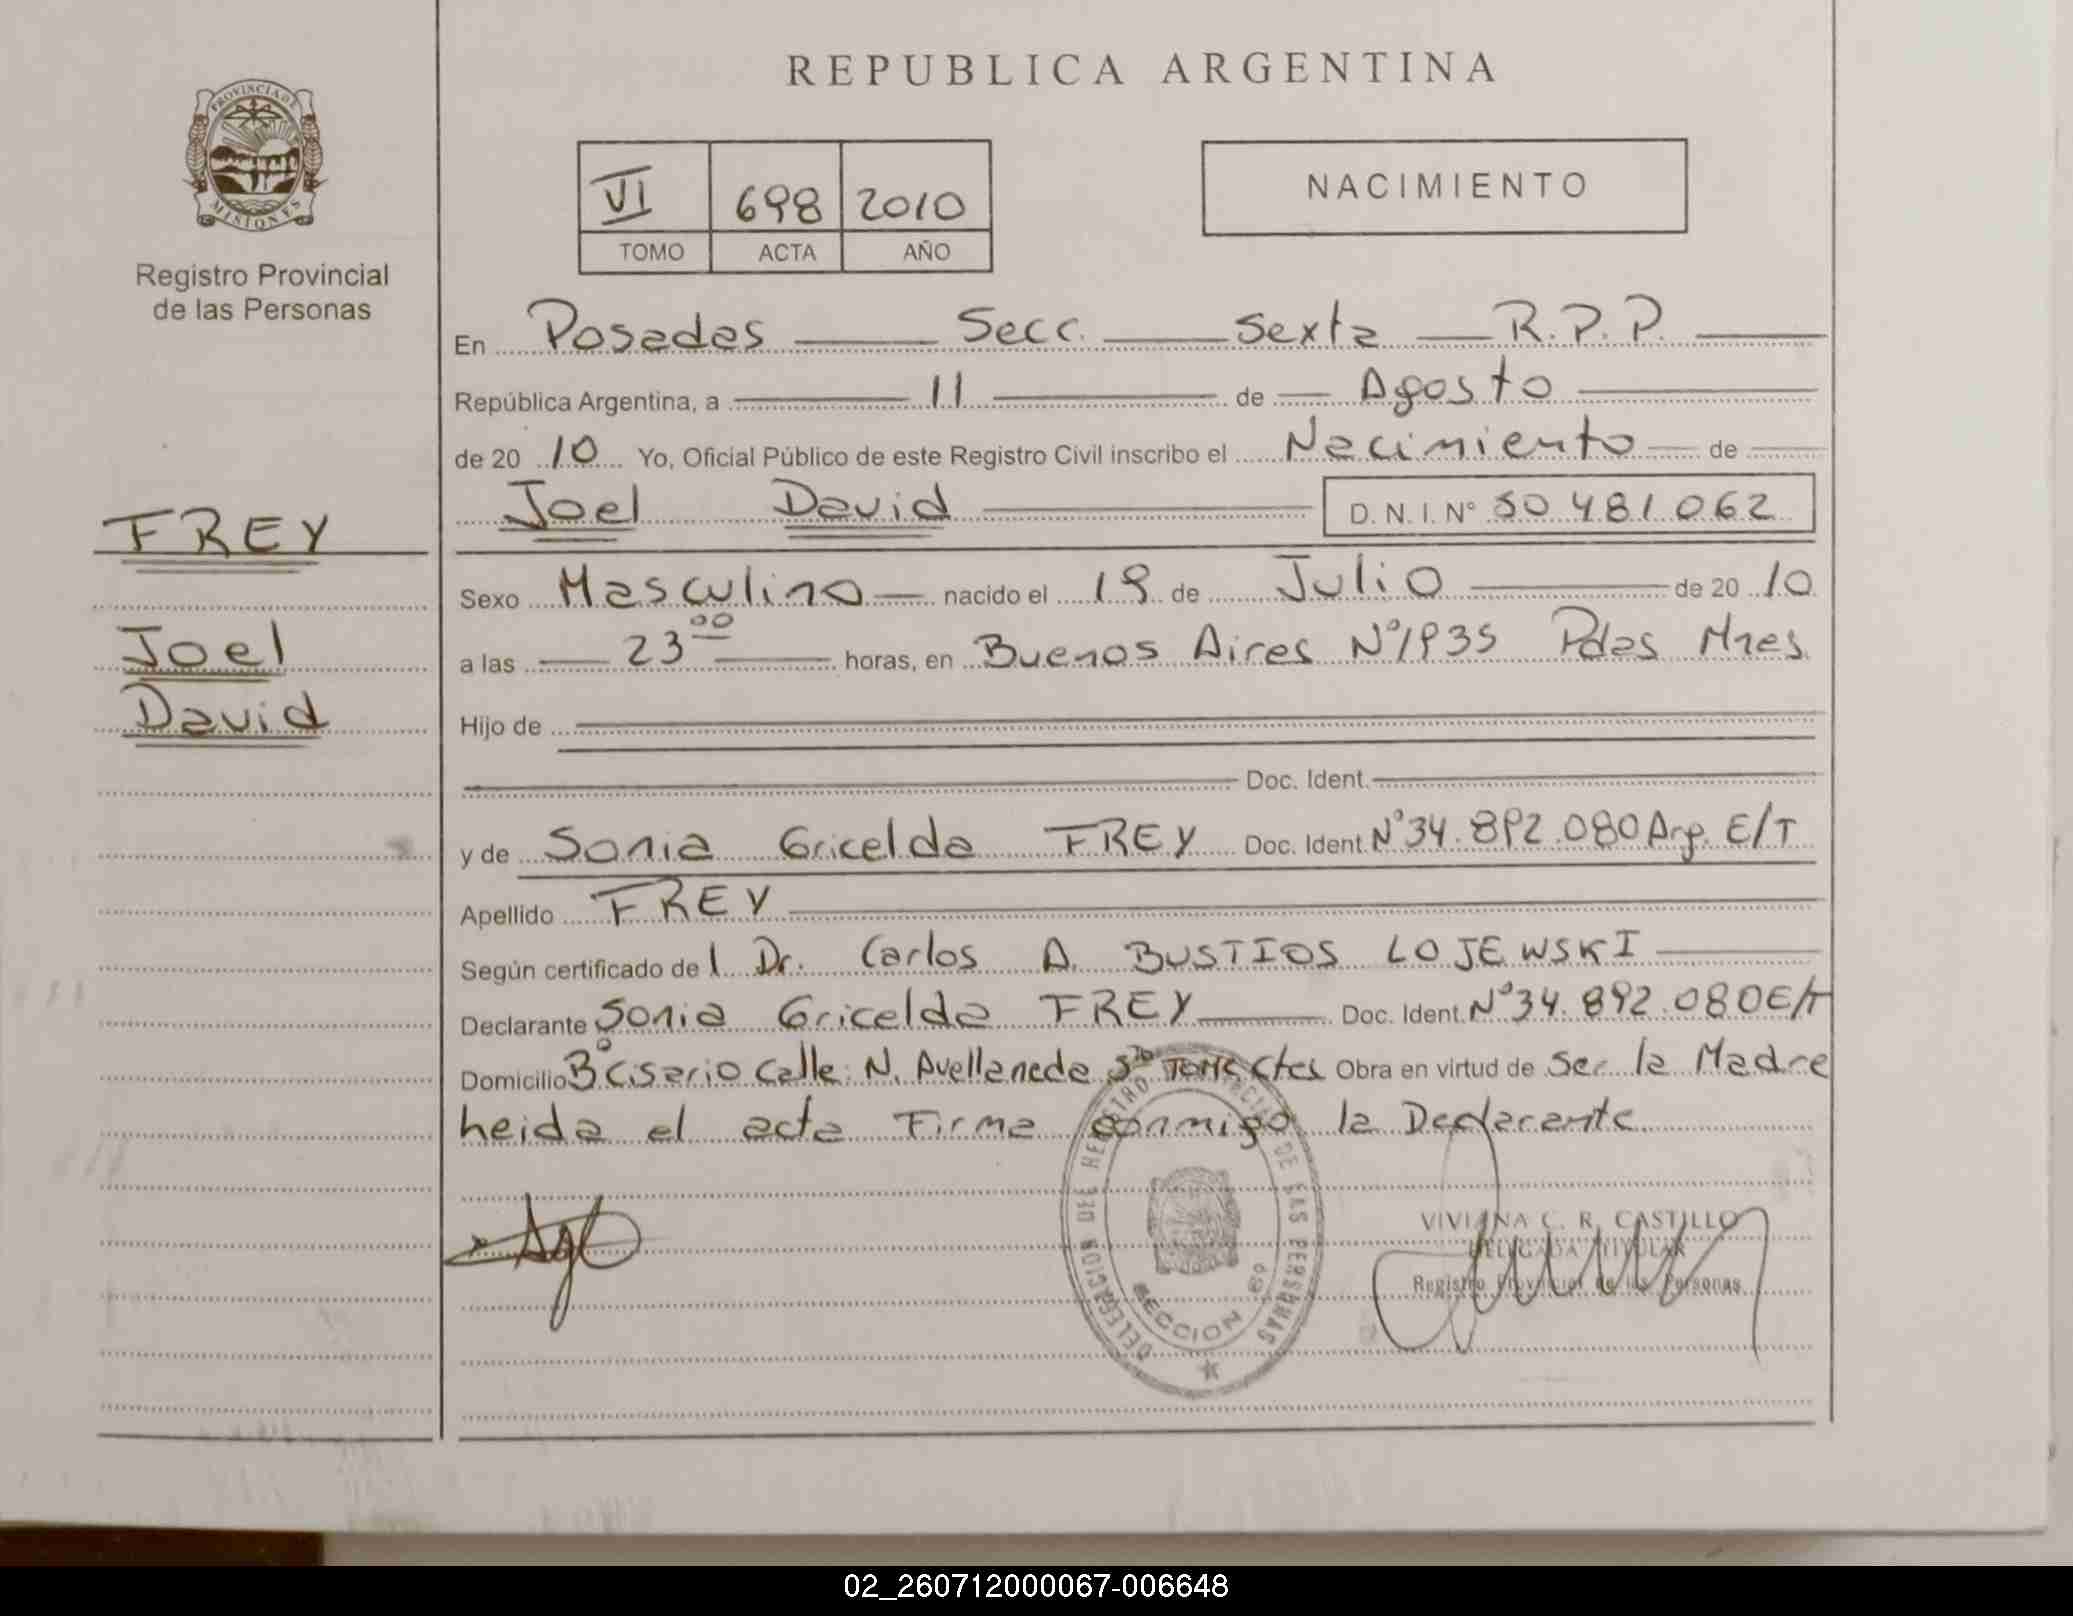 REPUBLICA ARGENTINA
PROVINCIA DE MISIONES
Registro Provincial
de las Personas
VI 698 2010
TOMO ACTA AÑO
NACIMIENTO
En Posadas Secc. Sexta R.P.P.
República Argentina, a 11 de Agosto
de 2010 Yo, Oficial Público de este Registro Civil inscribo el Nacimiento de
Joel David D.N.I. N° 50 481.062
FREY
Joel
David
Sexo Masculino nacido el 19 de Julio de 2010
a las 23 00 horas, en Buenos Aires N° 1935 Pdas Mnes
Hijo de
Doc. Ident.
y de Sonia Gricelda FREY Doc. Ident. N° 34.892.080 Arg. E/T
Apellido FREY
Según certificado de l Dr. Carlos A. BUSTIOS LOJEWSKI
Declarante Sonia Gricelda FREY Doc. Ident. N° 34.892.080 E/T
Domicilio B° Calle: N. Avellaneda Sto Tome Ctes Obra en virtud de Ser la Madre
heida el acta Firma conmigo la Declarante
DELEGACION DEL REGISTRO PROVINCIAL DE LAS PERSONAS
SECCION 6°
VIVIANA C. R. CASTILLO
DELEGADA TITULAR
Registro Provincial de las Personas
02_260712000067-006648